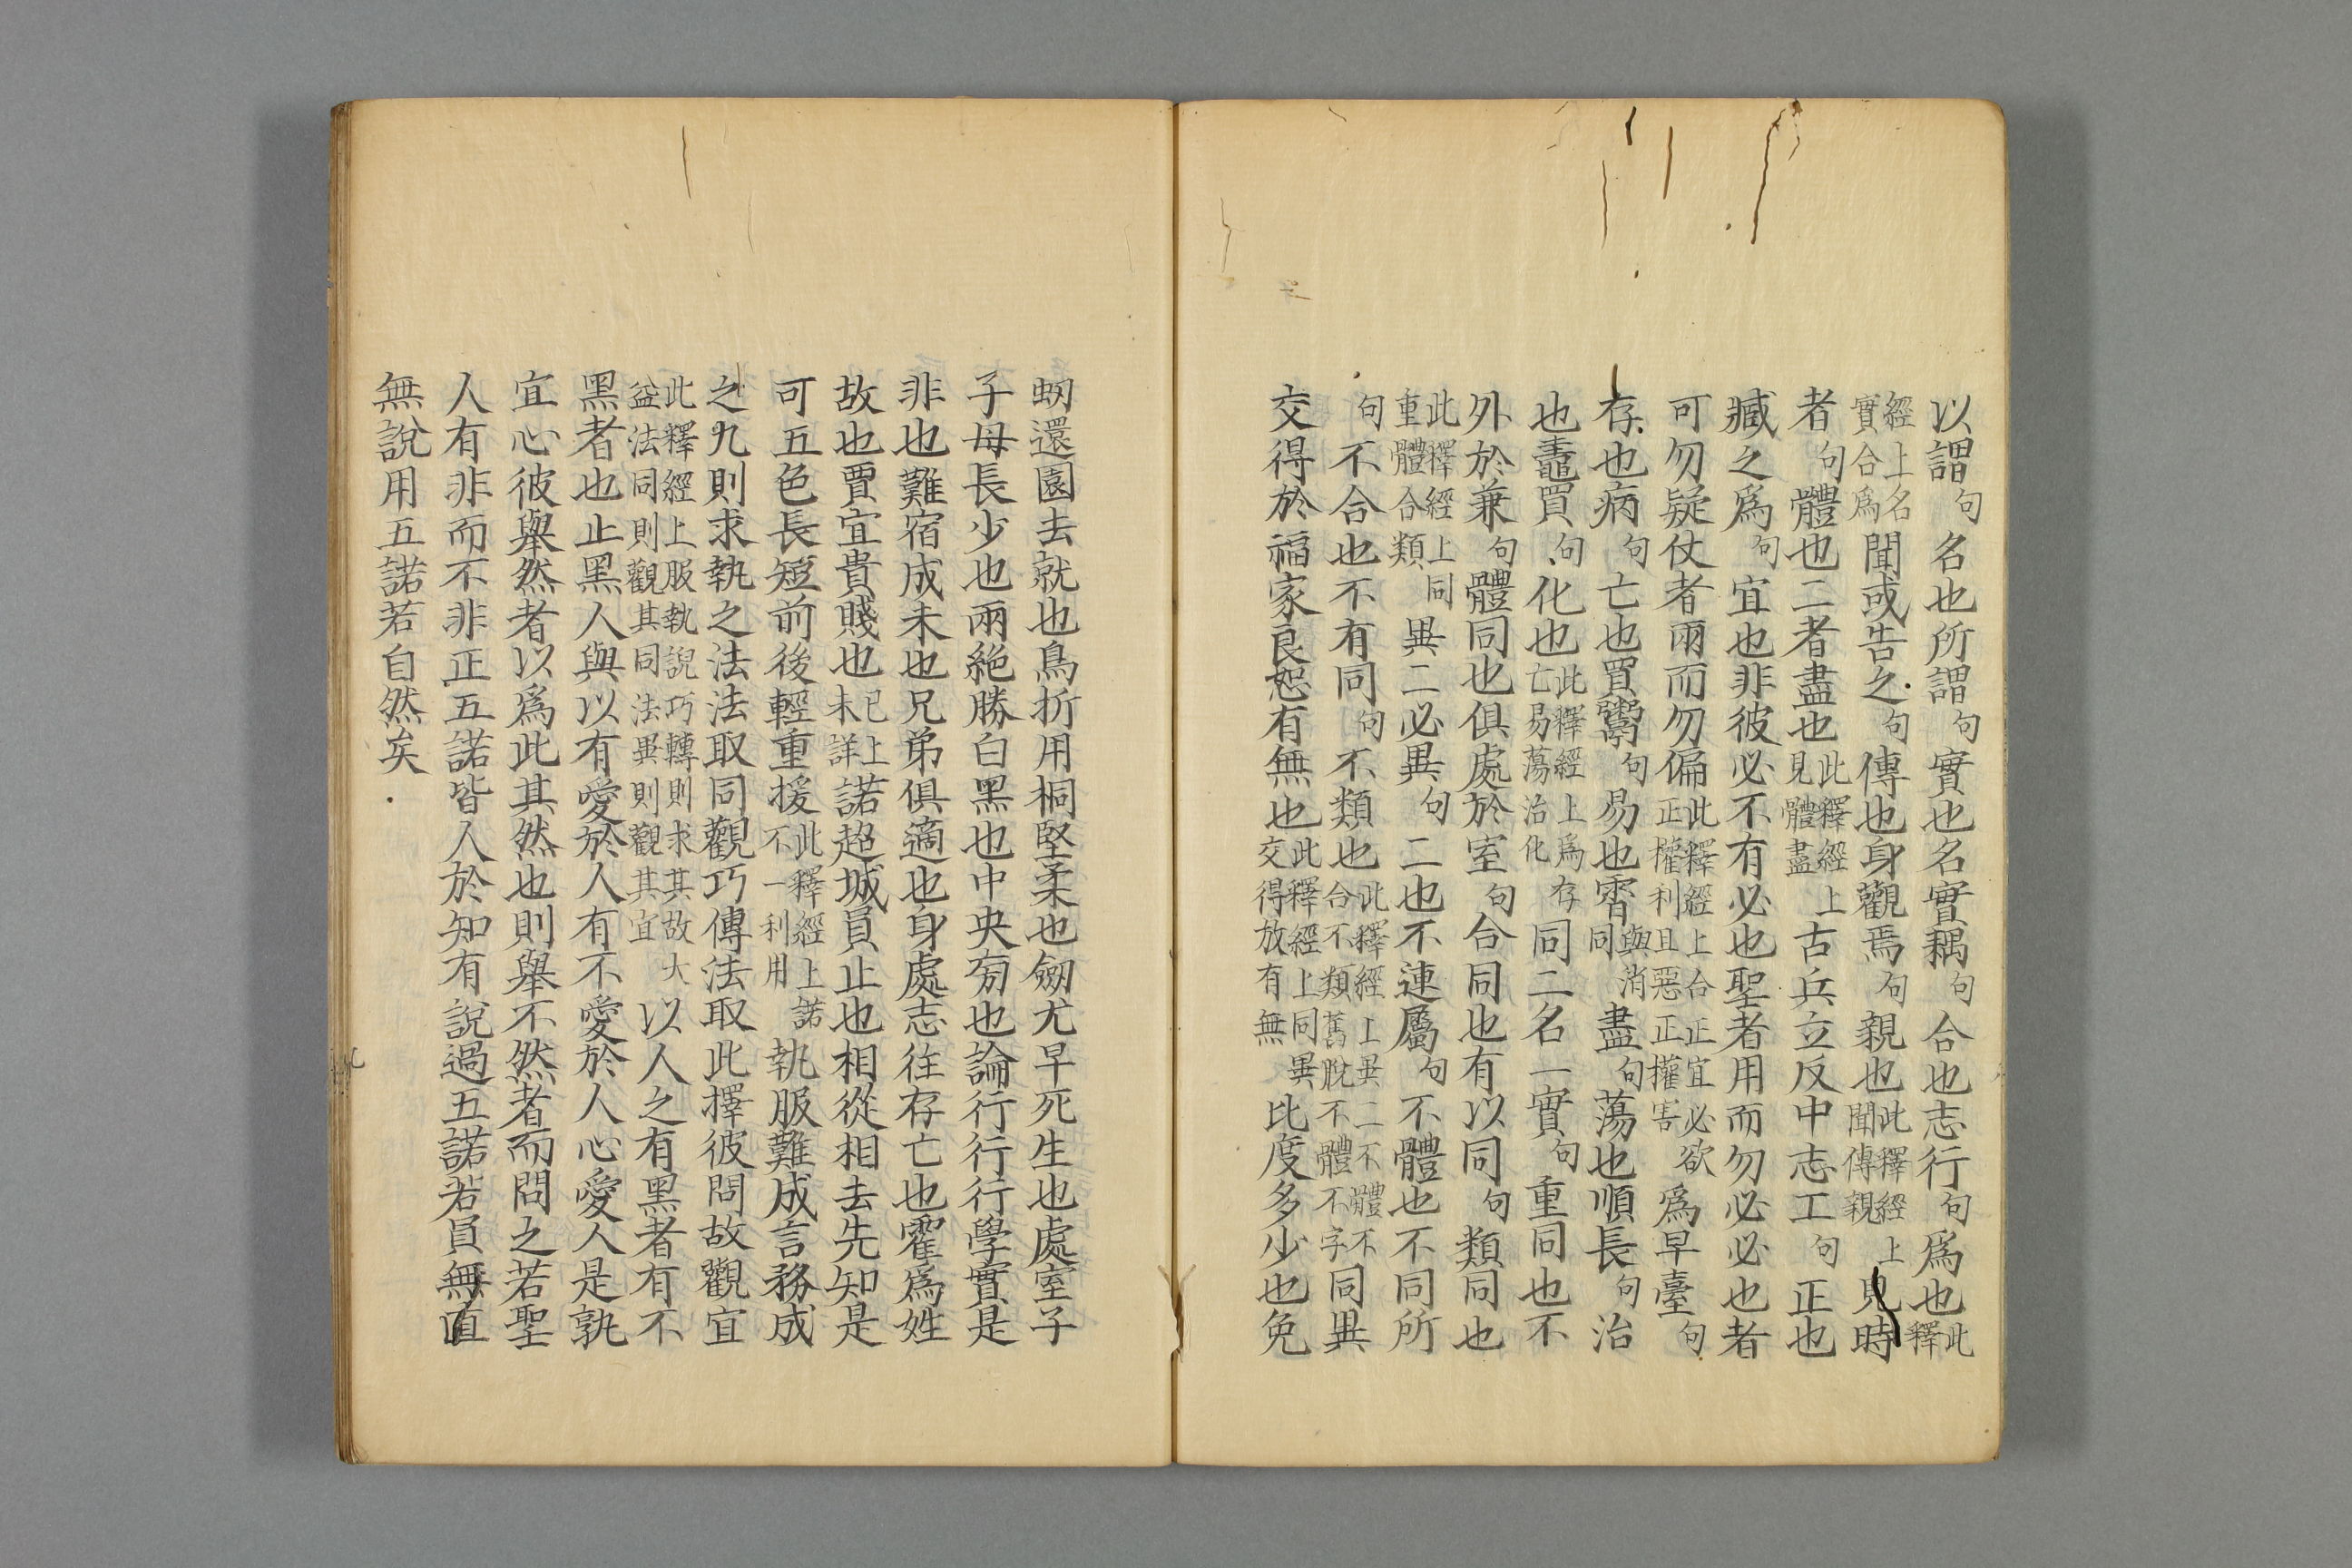 以謂句名也所謂句實也名實耦句合也志行句爲也此釋
經上名實合爲聞或告之句傳也身觀焉句親也此釋經上聞傳親見時
者句體也二者盡也此釋經上見體盡古兵立反中志工句正也
臧之爲句宜也非彼必不有必也聖者用而勿必必也者
可勿疑仗者兩而勿偏此釋經上合正宜必欲正權利且惡正權害爲早臺句
存也病句亡也買鬻句易也霄與消同盡句蕩也順長句治
也鼃買句化也此釋經上爲存亡易蕩治化同二名一實句重同也不
外於兼句體同也俱處於室句合同也有以同句類同也
此釋經上同重體合類異二必異句二也不連屬句不體也不同所
句不合也不有同句不類也此釋經上異二不體不合不類舊脫不體不字同異
交得於福家良恕有無也此釋經上同異交得放有無比度多少也免
蚓還園去就也鳥折用桐堅柔也劒尤早死生也處室子
子母長少也兩絶勝白黑也中央旁也論行行行學實是
非也難宿成未也兄弟俱適也身處志往存亡也霍爲姓
故也賈宜貴賤也已上未詳諾超城員止也相從相去先知是
可五色長短前後輕重援此釋經上諾不一利用執服難成言務成
之九則求執之法法取同觀巧傳法取此擇彼問故觀宜
此釋經上服執說巧轉則求其故大益法同則觀其同法異則觀其宜以人之有黑者有不
黑者也止黑人與以有愛於人有不愛於人心愛人是孰
宜心彼舉然者以爲此其然也則舉不然者而問之若聖
人有非而不非正五諾皆人於知有說過五諾若員無直
無說用五諾若自然矣